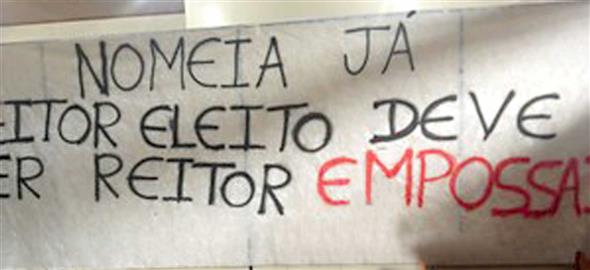 NOMEIA JÁ
EITOR ELEITO DEVE
ER REITOR EMPOSSA